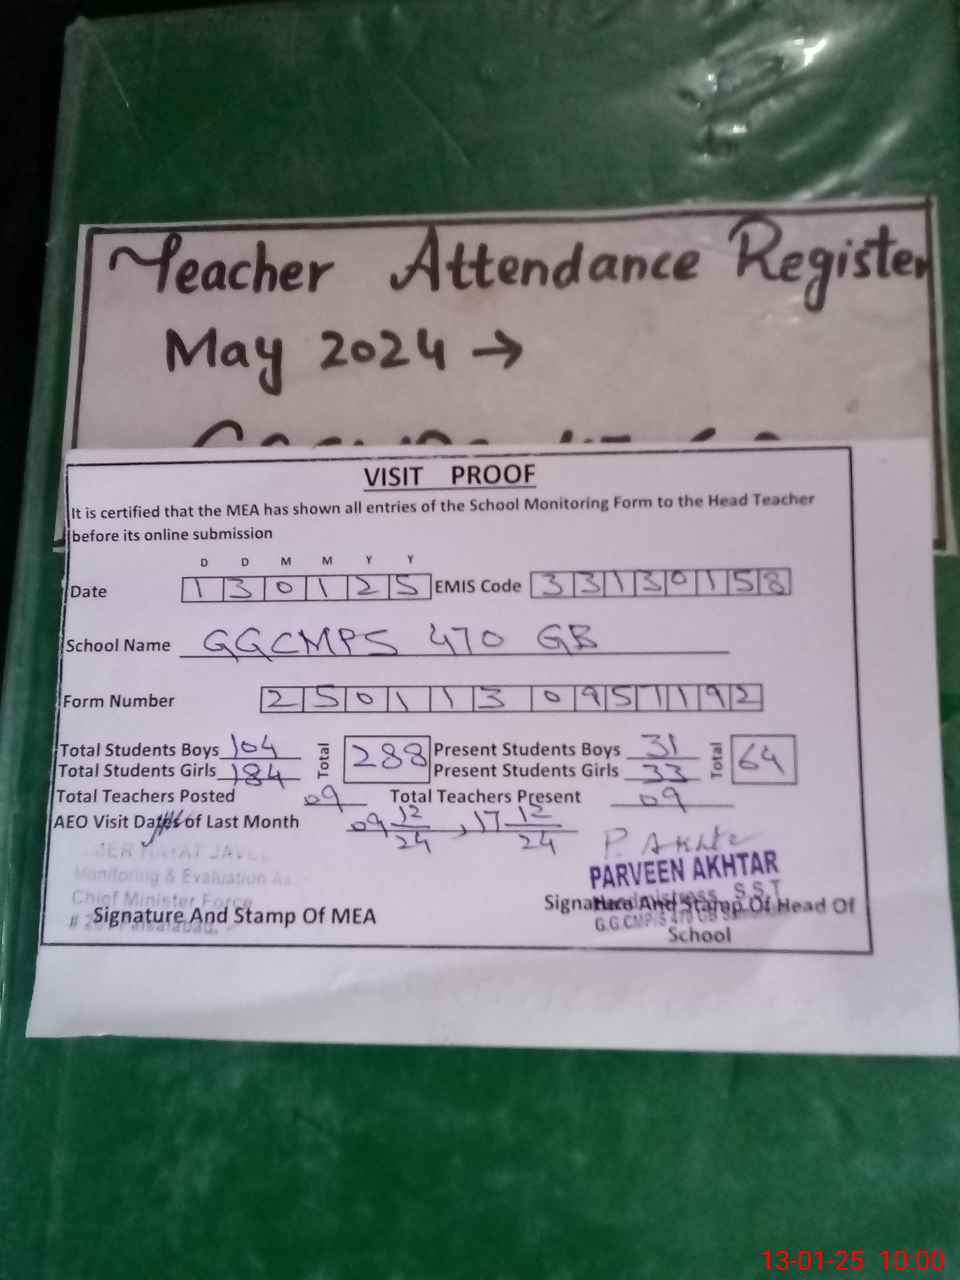 Teacher Attendance Register
May 2024 →
VISIT PROOF
It is certified that the MEA has shown all entries of the School Monitoring Form to the Head Teacher
before its online submission
D D M M Y Y
Date 1 3 0 1 2 5 EMIS Code 3 3 1 3 0 1 5 8
School Name GGCMPS 470 GB
Form Number 2 5 0 1 1 3 0 9 5 1 1 9 2
Total Students Boys 104 Total 288 Present Students Boys 31 Total 64
Total Students Girls 184 Present Students Girls 33
Total Teachers Posted 09 Total Teachers Present 09
AEO Visit Dates of Last Month 09 12/24, 17 12/24
P. Akhtar
PARVEEN AKHTAR
Monitoring & Evaluation
Chief Minister Force
Headmistress S.S.T
Signature And Stamp Of MEA
Signature And Stamp Of Head Of
Faisalabad.
G.G.CMP/S 470 GB
School
13-01-25 10:00